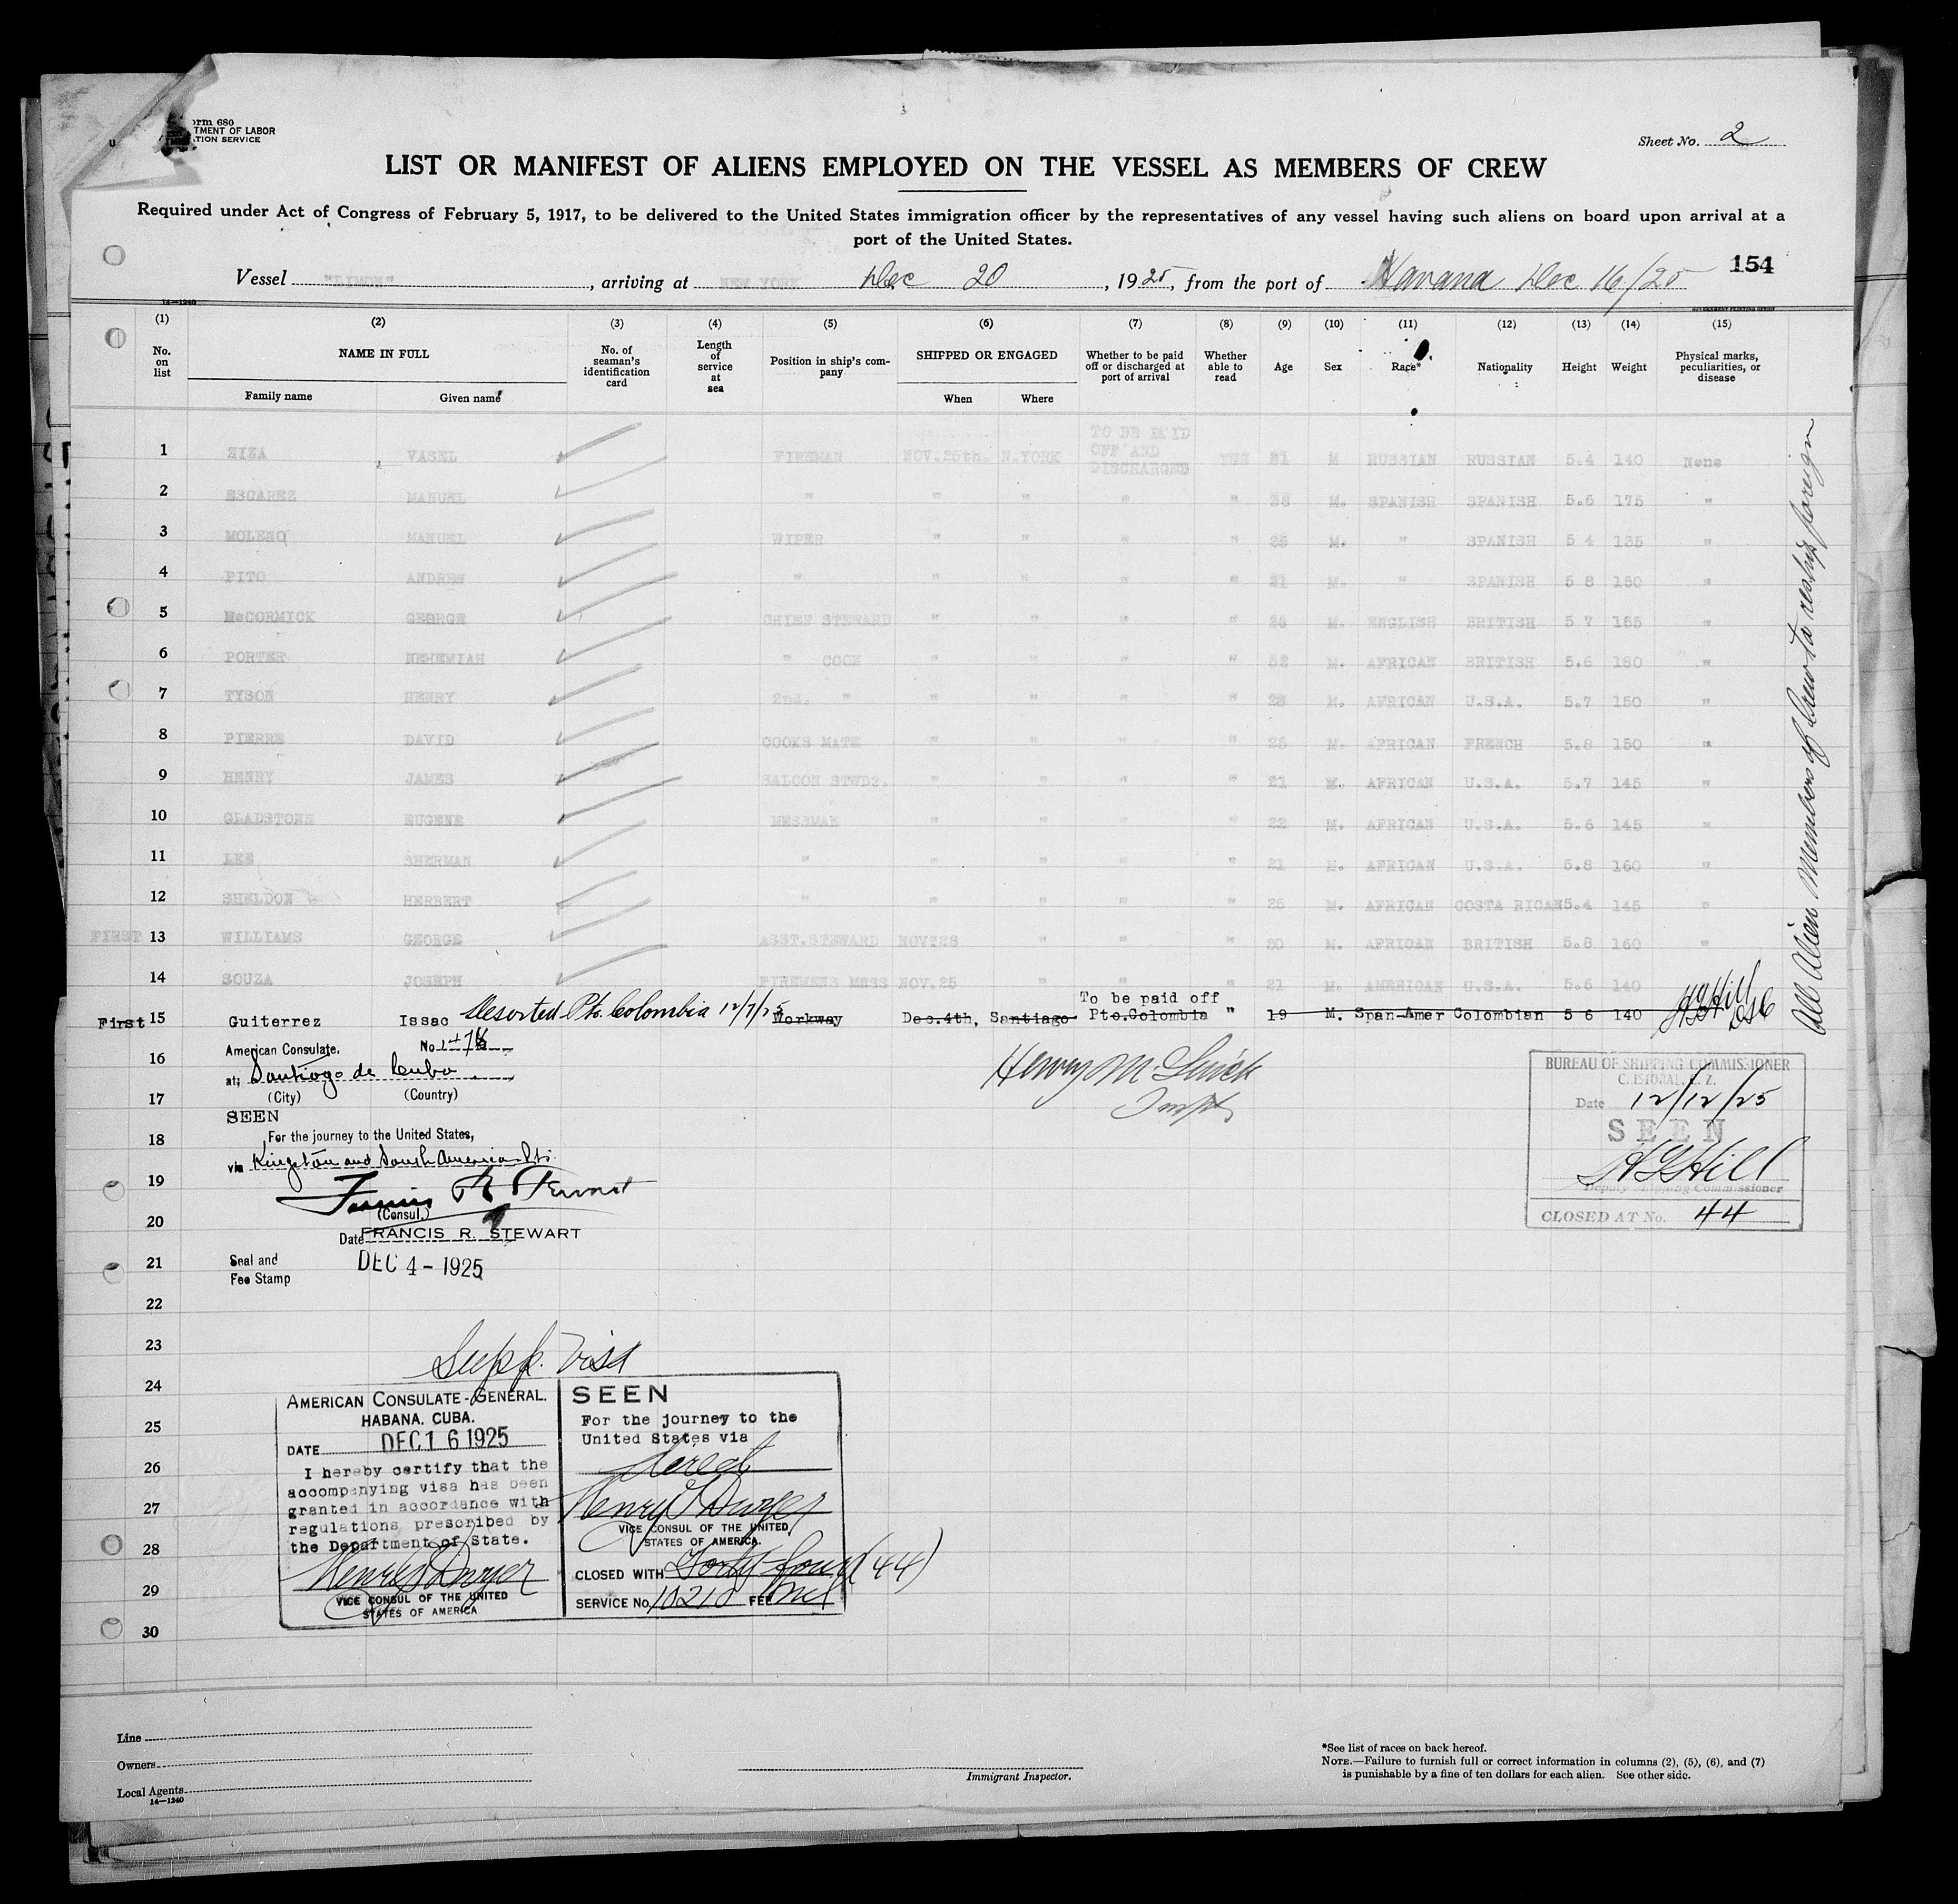 Form 680
TMENT OF LABOR
TION SERVICE
Sheet No. 2
LIST OR MANIFEST OF ALIENS EMPLOYED ON THE VESSEL AS MEMBERS OF CREW
Required under Act of Congress of February 5, 1917, to be delivered to the United States immigration officer by the representatives of any vessel having such aliens on board upon arrival at a
port of the United States.
154
Vessel "LIMON", arriving at NEW YORK Dec 20, 1925, from the port of Havana Dec 16/25
14—1240
GOVERNMENT PRINTING OFFICE
(1) (2) (3) (4) (5) (6) (7) (8) (9) (10) (11) (12) (13) (14) (15)
No. on list NAME IN FULL Family name Given name No. of seaman's identification card Length of service at sea Position in ship's company SHIPPED OR ENGAGED When Where Whether to be paid off or discharged at port of arrival Whether able to read Age Sex Race* Nationality Height Weight Physical marks, peculiarities, or disease
1 ZIZA VASEL FIREMAN NOV.25th. N.YORK TO BE PAID OFF AND DISCHARGED YES 21 M RUSSIAN RUSSIAN 5.4 140 None
2 ESCAREZ MANUEL " " " " " 38 M. SPANISH SPANISH 5.6 175 "
3 MOLENO MANUEL WIPER " " " " 25 M. " SPANISH 5 4 135 "
4 PITO ANDREW " " " " " 21 M. " SPANISH 5 8 150 "
5 McCORMICK GEORGE CHIEF STEWARD " " " " M. ENGLISH BRITISH 5 7 155 "
6 PORTER NEHEMIAH " COOK " " " " 52 M. AFRICAN BRITISH 5.6 180 "
7 TYSON HENRY 2nd. " " " " " 28 M. AFRICAN U.S.A. 5.7 150 "
8 PIERRE DAVID COOKS MATE " " " " 25 M. AFRICAN FRENCH 5.8 150 "
9 HENRY JAMES SALOON STWDS. " " " " 21 M. AFRICAN U.S.A. 5.7 145 "
10 GLADSTONE EUGENE MESSMAN " " " " 22 M. AFRICAN U.S.A. 5.6 145 "
11 LEE SHERMAN " " " " " 21 M. AFRICAN U.S.A. 5.8 160 "
12 SHELDON HERBERT " " " " " 25 M. AFRICAN COSTA RICAN 5.4 145 "
FIRST 13 WILLIAMS GEORGE ASST.STEWARD NOV 28 " " " 20 M. AFRICAN BRITISH 5.8 160 "
14 SOUZA JOSEPH FIREMENS MESS NOV.25 " " " 21 M. AMERICAN U.S.A. 5.6 140
First 15 Guiterrez Issac Deserted Pto. Colombia 12/7/25 Workway Dec.4th, Santiago To be paid off Pto.Colombia " 19 M. Span-Amer Colombian 5 6 140 HGHill DSC
All Alien Members of Crew to reship foreign
16
17
18
19
20
21
22
23
24
25
26
27
28
29
30
American Consulate,
No.
at; Santiago de Cuba
(City) (Country)
SEEN
For the journey to the United States,
via Kingston and South American Pts.
Francis R Stewart
(Consul.)
Date FRANCIS R. STEWART
DEC 4 - 1925
Seal and
Fee Stamp
BUREAU OF SHIPPING COMMISSIONER
CRISTOBAL, C. Z.
Date 12/12/25
SEEN
HGHill
Deputy Shipping Commissioner
CLOSED AT No. 44
Supp. Visa
AMERICAN CONSULATE-GENERAL.
HABANA, CUBA.
DATE DEC 16 1925
I hereby certify that the
accompanying visa has been
granted in accordance with
regulations prescribed by
the Department of State.
Henry S Dwyer
VICE CONSUL OF THE UNITED
STATES OF AMERICA
SEEN
For the journey to the
United States via
direct
Henry S Dwyer
VICE CONSUL OF THE UNITED
STATES OF AMERICA.
CLOSED WITH Forty-four (44)
SERVICE No. 10210 FEE Nil
Line
Owners
Local Agents
14—1240
Immigrant Inspector.
*See list of races on back hereof.
NOTE.—Failure to furnish full or correct information in columns (2), (5), (6), and (7)
is punishable by a fine of ten dollars for each alien. See other side.